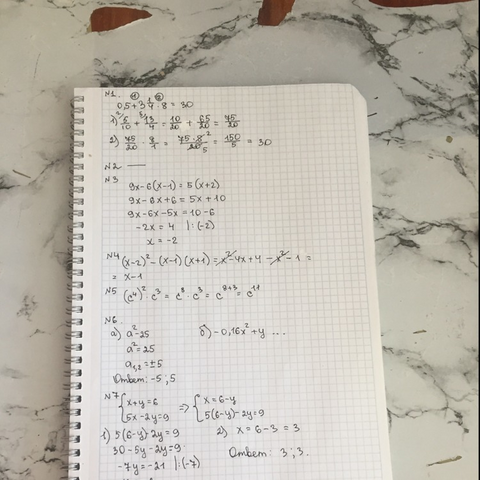 N1. ① ②
0,5+3 1/4 · 8 = 30
1) 5/10 + 13/4 = 10/20 + 65/20 = 75/20
2) 75/20 · 8/1 = 75·8/20 = 150/5 = 30
N2 —
N3
9x-6(x-1) = 5(x+2)
9x-6x+6 = 5x+10
9x-6x-5x = 10-6
-2x = 4 |:(-2)
x = -2
N4 (x-2)² - (x-1)(x+1) = x² - 4x+4 - x² - 1 =
= x-1
N5 (c⁴)² · c³ = c⁸ · c³ = c⁸⁺³ = c¹¹
N6
а) a²-25 б) -0,16x²+y ...
a² = 25
a₁,₂ = ±5
Ответ: -5 ; 5
N7
{x+y=6 => {x=6-y
{5x-2y=9 {5(6-y)-2y=9
1) 5(6-y)-2y=9 2) x = 6-3 = 3
30-5y-2y=9
-7y = -21 |:(-7) Ответ: 3 ; 3.